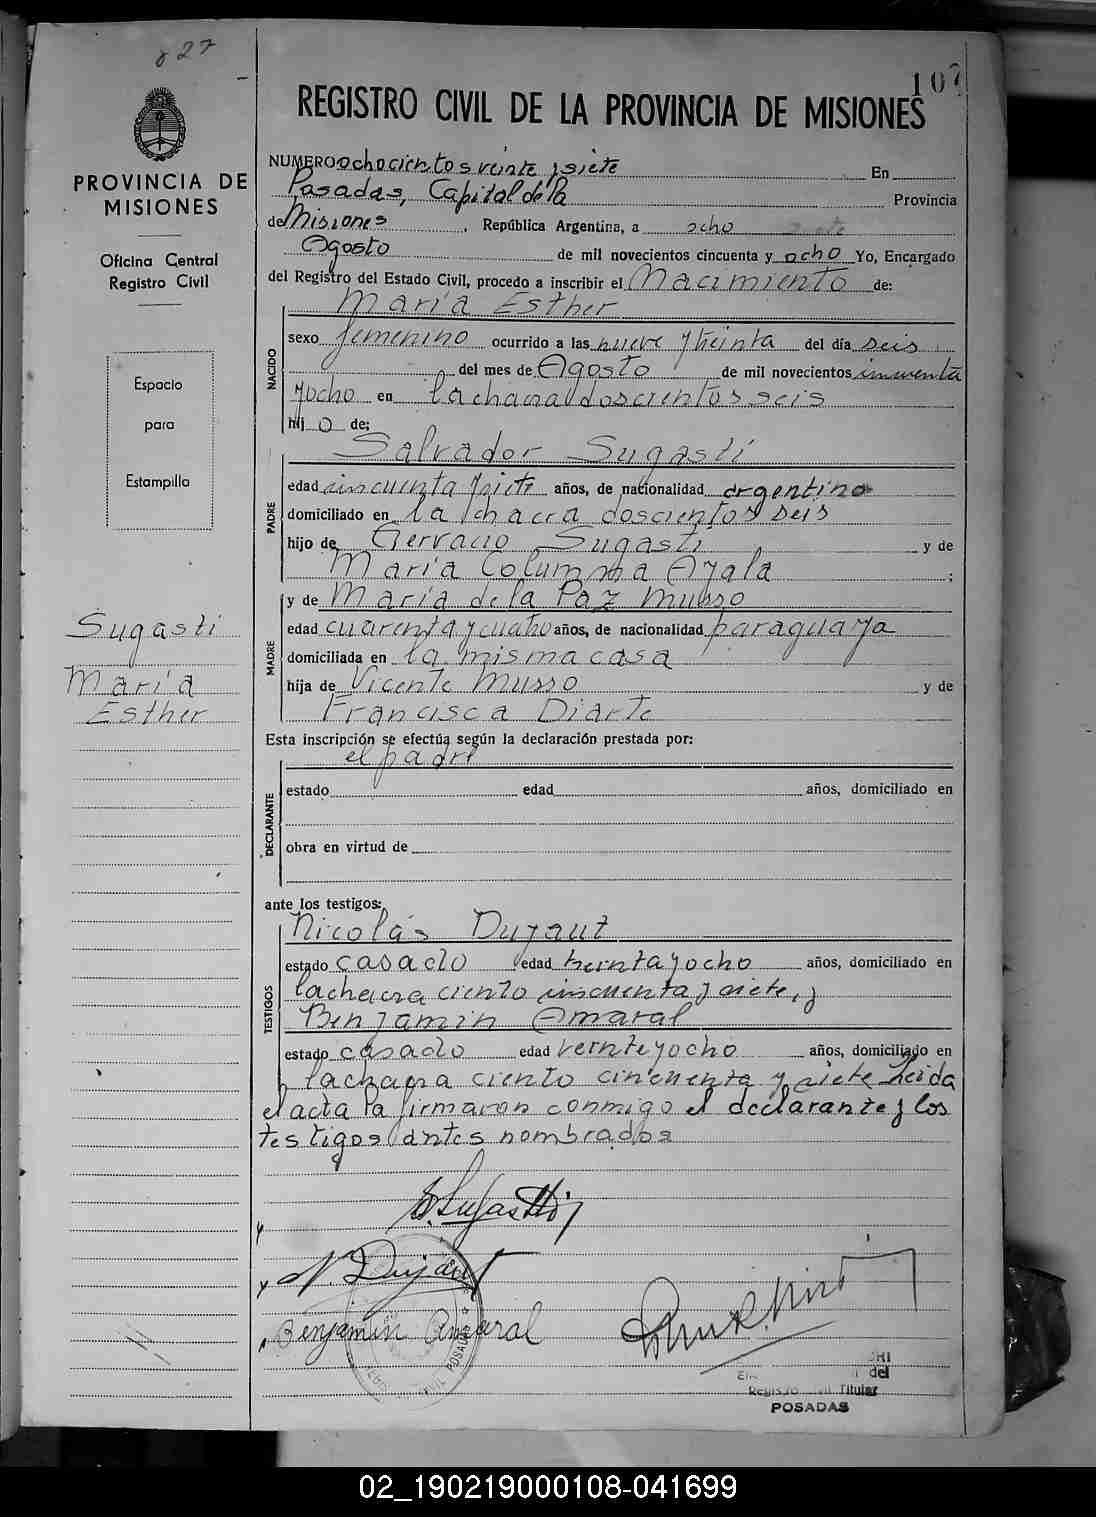 827
107
REGISTRO CIVIL DE LA PROVINCIA DE MISIONES
PROVINCIA DE
MISIONES
Oficina Central
Registro Civil
Espacio
para
Estampilla
Sugasti
María
Esther
NUMERO ochocientos veinte y siete En
Posadas, Capital de la Provincia
de Misiones, República Argentina, a ocho
Agosto de mil novecientos cincuenta y ocho Yo, Encargado
del Registro del Estado Civil, procedo a inscribir el Nacimiento de:
María Esther
NACIDO
sexo femenino ocurrido a las nueve y treinta del día seis
del mes de Agosto de mil novecientos cincuenta
y ocho en la chacra doscientos seis
hij o de;
Salvador Sugasti
PADRE
edad cincuenta y siete años, de nacionalidad argentino
domiciliado en la chacra doscientos seis
hijo de Gervacio Sugasti y de
María Columna Ayala ;
y de María de la Paz Musso
MADRE
edad cuarenta y cuatro años, de nacionalidad paraguaya
domiciliada en la misma casa
hija de Vicente Musso y de
Francisca Diarte
Esta inscripción se efectúa según la declaración prestada por:
el padre
DECLARANTE
estado edad años, domiciliado en
obra en virtud de
ante los testigos:
Nicolás Dujaut
TESTIGOS
estado casado edad treinta y ocho años, domiciliado en
la chacra ciento cincuenta y siete, y
Benjamin Amaral
estado casado edad veinte y ocho años, domiciliado en
la chacra ciento cincuenta y siete Leida
el acta la firmaron conmigo el declarante y los
testigos antes nombrados
S. Sugasti
N. Dujaut
Benjamín Amaral
POSADAS
del
Registro Civil Titular
POSADAS
02_190219000108-041699